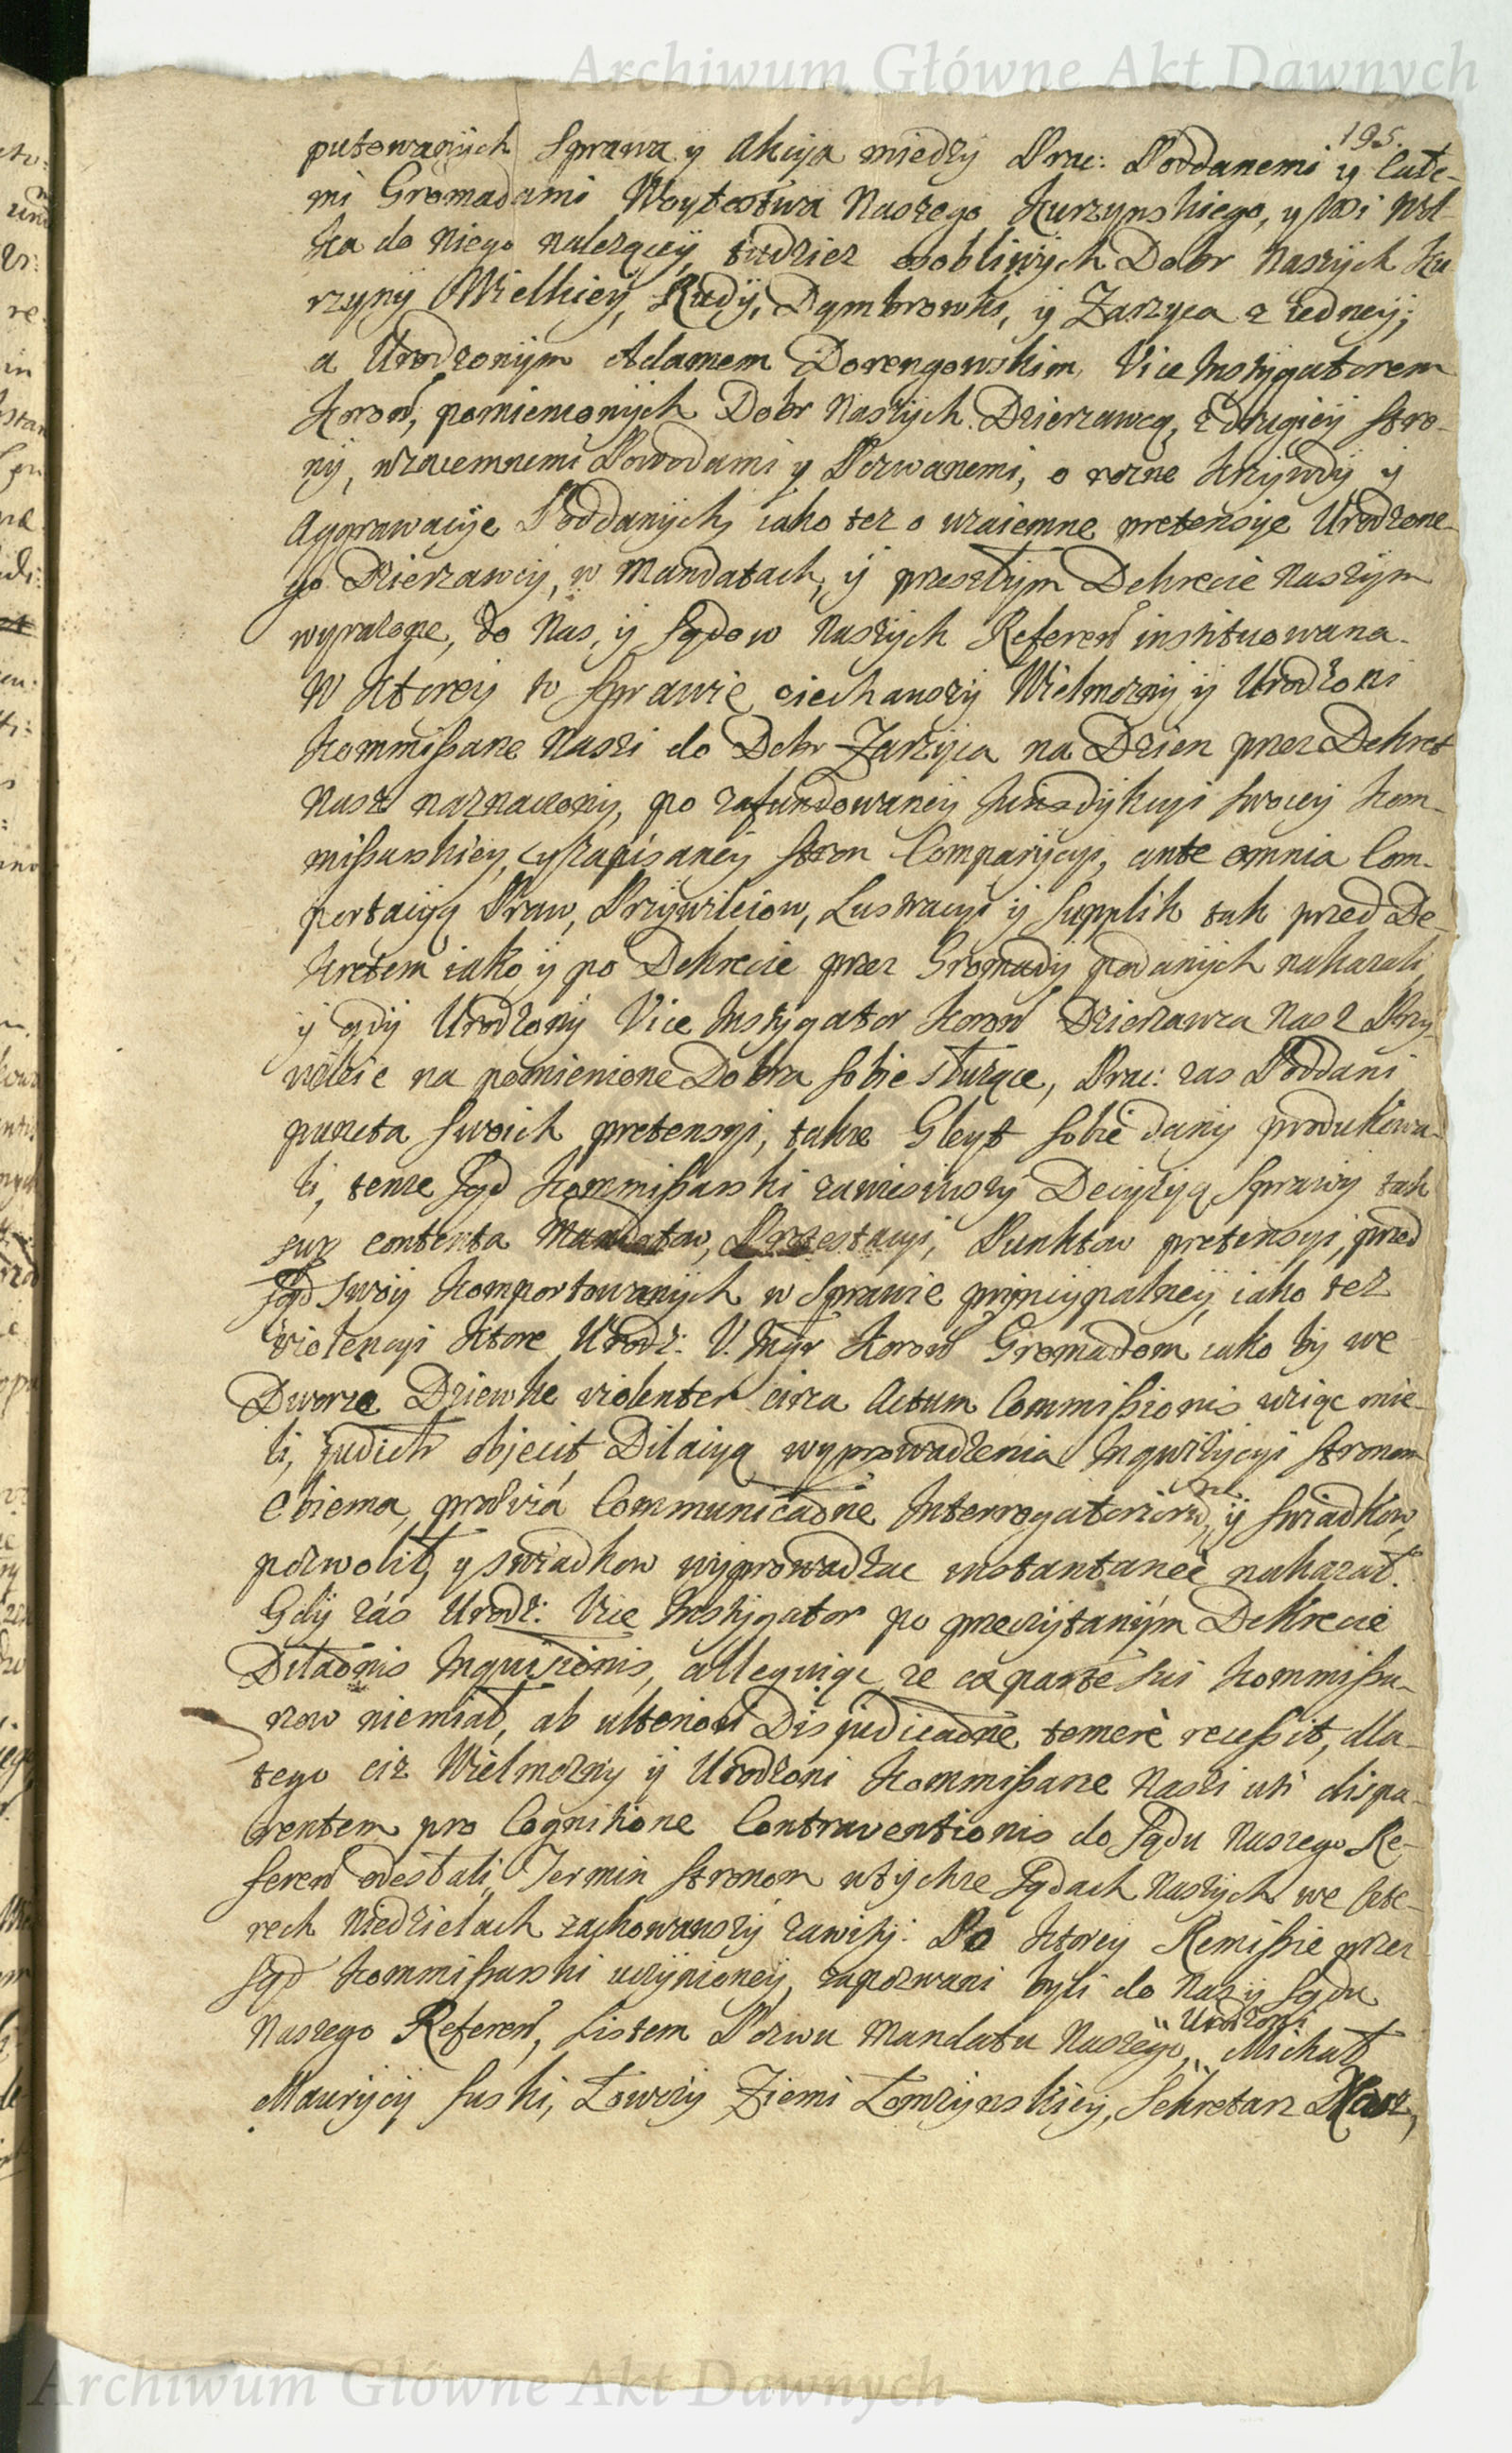 Archiwum Główne Akt Dawnych
195.
putowanych Sprawa y Akcya miedzy Prac: Poddanemi y Całe-
mi Gromadami Woytostwa Naszego Kurzynskiego, y Wsi Wol-
ka do Niego nalezącey, tudziez osobliwych Dobr Naszych Ku
rzyny Wielkiey, Rudy, Dąmbrowki, y Zarzyca z iedney;
a Urodzonym Adamem Dorengowskim Vice Instygatorem
Koron, pomienionych Dobr Naszych Dzierzawcą, z drugiey stro-
ny, wzaiemnemi Powodami y Pozwanemi, o rozne krzywdy y
Aggrawacye Poddanych, iako tez o wzaiemne pretensye Urodzone-
go Dzierzawcy, w Mandatach, y przeszłym Dekrecie Naszym
wyrazone, do Nas, y Sądow Naszych Referen instituowana.
W ktorey to Sprawie ziechawszy Wielmozny y Urodzoni
Kommissarze Naszi do Dobr Zarzyca na Dzien przez Dekret
Nasz naznaczony, po zafundowaney Jurisdykcyi swoiey Kom-
missarskiey, y zapisaney stron Comparycyi, ante omnia Com-
portacyą Praw, Przywileiow, Lustracyi y Supplik tak przed De-
kretem iako y po Dekrecie przez Gromady podanych nakazali,
y gdy Urodzony Vice Instygator Koron Dzierzawca Nasz Przy-
wileie na pomienione Dobra sobie słuzące, Prac: zas Poddani
puncta swoich pretensyi, takze Gleyt sobie dany produkowa-
li, tenze Sąd Kommissarski zawiesiwszy Decyzyą Sprawy tak
sup contenta Mandatow, Protestacyi, Punktow pretensyi, przed
Sąd swoy komportowanych w Sprawie pryncypalney iako tez
violencyi ktore Urodz: V. Instgr Koron Gromadom iako by we
Dworze Dziewke violenter circa Actum Commissionis wziąc mie-
li, judicii objecit, Dilacyą wyprowadzenia Inqwizycyi stronom
obiema, praevia Communicatione Interrogatoriorum, y swiadkow
pozwolił, y swiadkow wyprowadzac instantanee nakazał.
Gdy zás Urodz: Vice Instygator po przeczytanym Dekrecie
Dilationis Inquisitionis, alleguiąc ze ex parte sui Kommissa-
rzow niemiał, ab ulteriori Disjudicatione temere recessit, dla-
tego ciz Wielmozny y Urodzoni Kommissarze Naszi uti dispa-
rentem pro Cognitione Contraventionis do Sądu Naszego Re-
feren odesłali, Termin stronom w tychze Sądach Naszych we czte-
rech Niedzielach zachowawszy zawity. Po ktorey Remissie przez
Sąd Kommissarski uczynioney, zapozwani byli do Nas y Sądu
Naszego Referen, Listem Pozwu Mandatu Naszego,
Urodzoni
Michał
Maurycy Suski, Łowczy Ziemi Łomzynskiey, Sekretarz Nasz,
Archiwum Główne Akt Dawnych